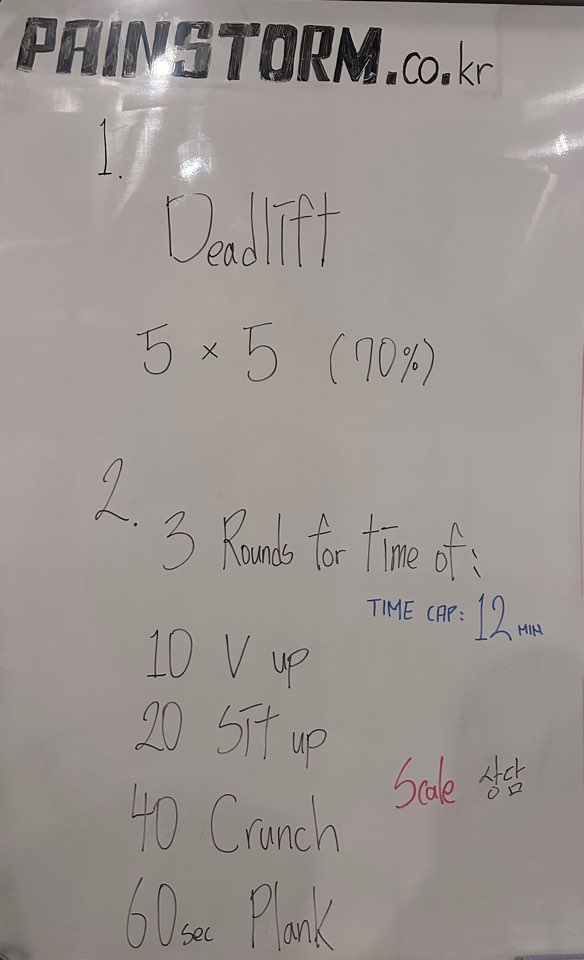 PAINSTORM.co.kr
1.
Deadlift
5 × 5 (70%)
2.
3 Rounds for time of:
TIME CAP: 12 MIN
10 V up
20 Sit up
Scale 상담
40 Crunch
60sec Plank